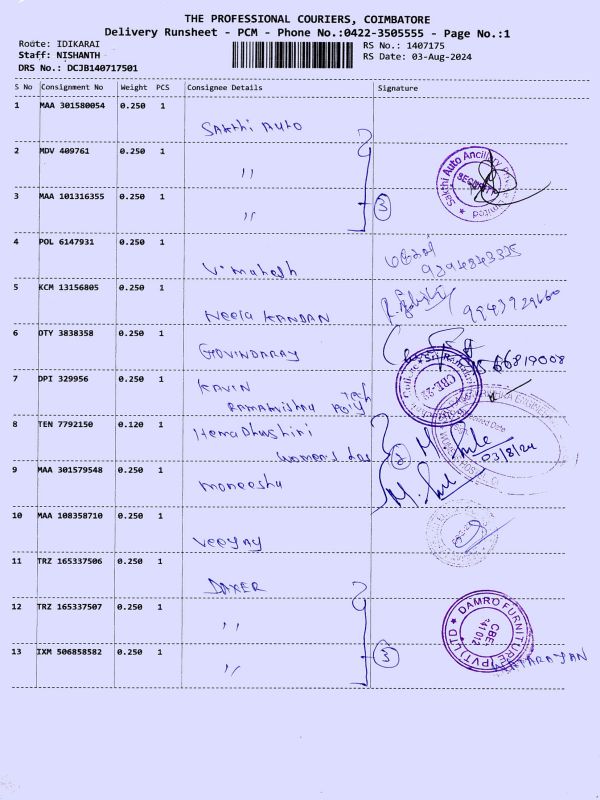 THE PROFESSIONAL COURIERS, COIMBATORE
Delivery Runsheet - PCM - Phone No.:0422-3505555 - Page No.:1
Route: IDIKARAI
RS No.: 1407175
Staff: NISHANTH
RS Date: 03-Aug-2024
DRS No.: DCJB140717501
S No Consignment No Weight PCS Consignee Details Signature
1 MAA 301580054 0.250 1
Sakthi Auto
2 MDV 409761 0.250 1
"
Sakthi Auto Ancillary Private Limited
SECURITY
3 MAA 101316355 0.250 1
"
3
4 POL 6147931 0.250 1
V. Mahesh
5 KCM 13156805 0.250 1
Neela KANDAN
6 DTY 3838358 0.250 1
GOVINDARAY
7 DPI 329956 0.250 1
KAVIN
Tech
Poly
CBE-22
8 TEN 7792150 0.120 1
HemaDharshini
Womens
2
03/8/24
9 MAA 301579548 0.250 1
moneesha
10 MAA 108358710 0.250 1
11 TRZ 165337506 0.250 1
DAXER
12 TRZ 165337507 0.250 1
"
DAMRO FURNITURE (PVT) LTD
CBE
641 012
13 IXM 506858582 0.250 1
"
3
NATARAJAN